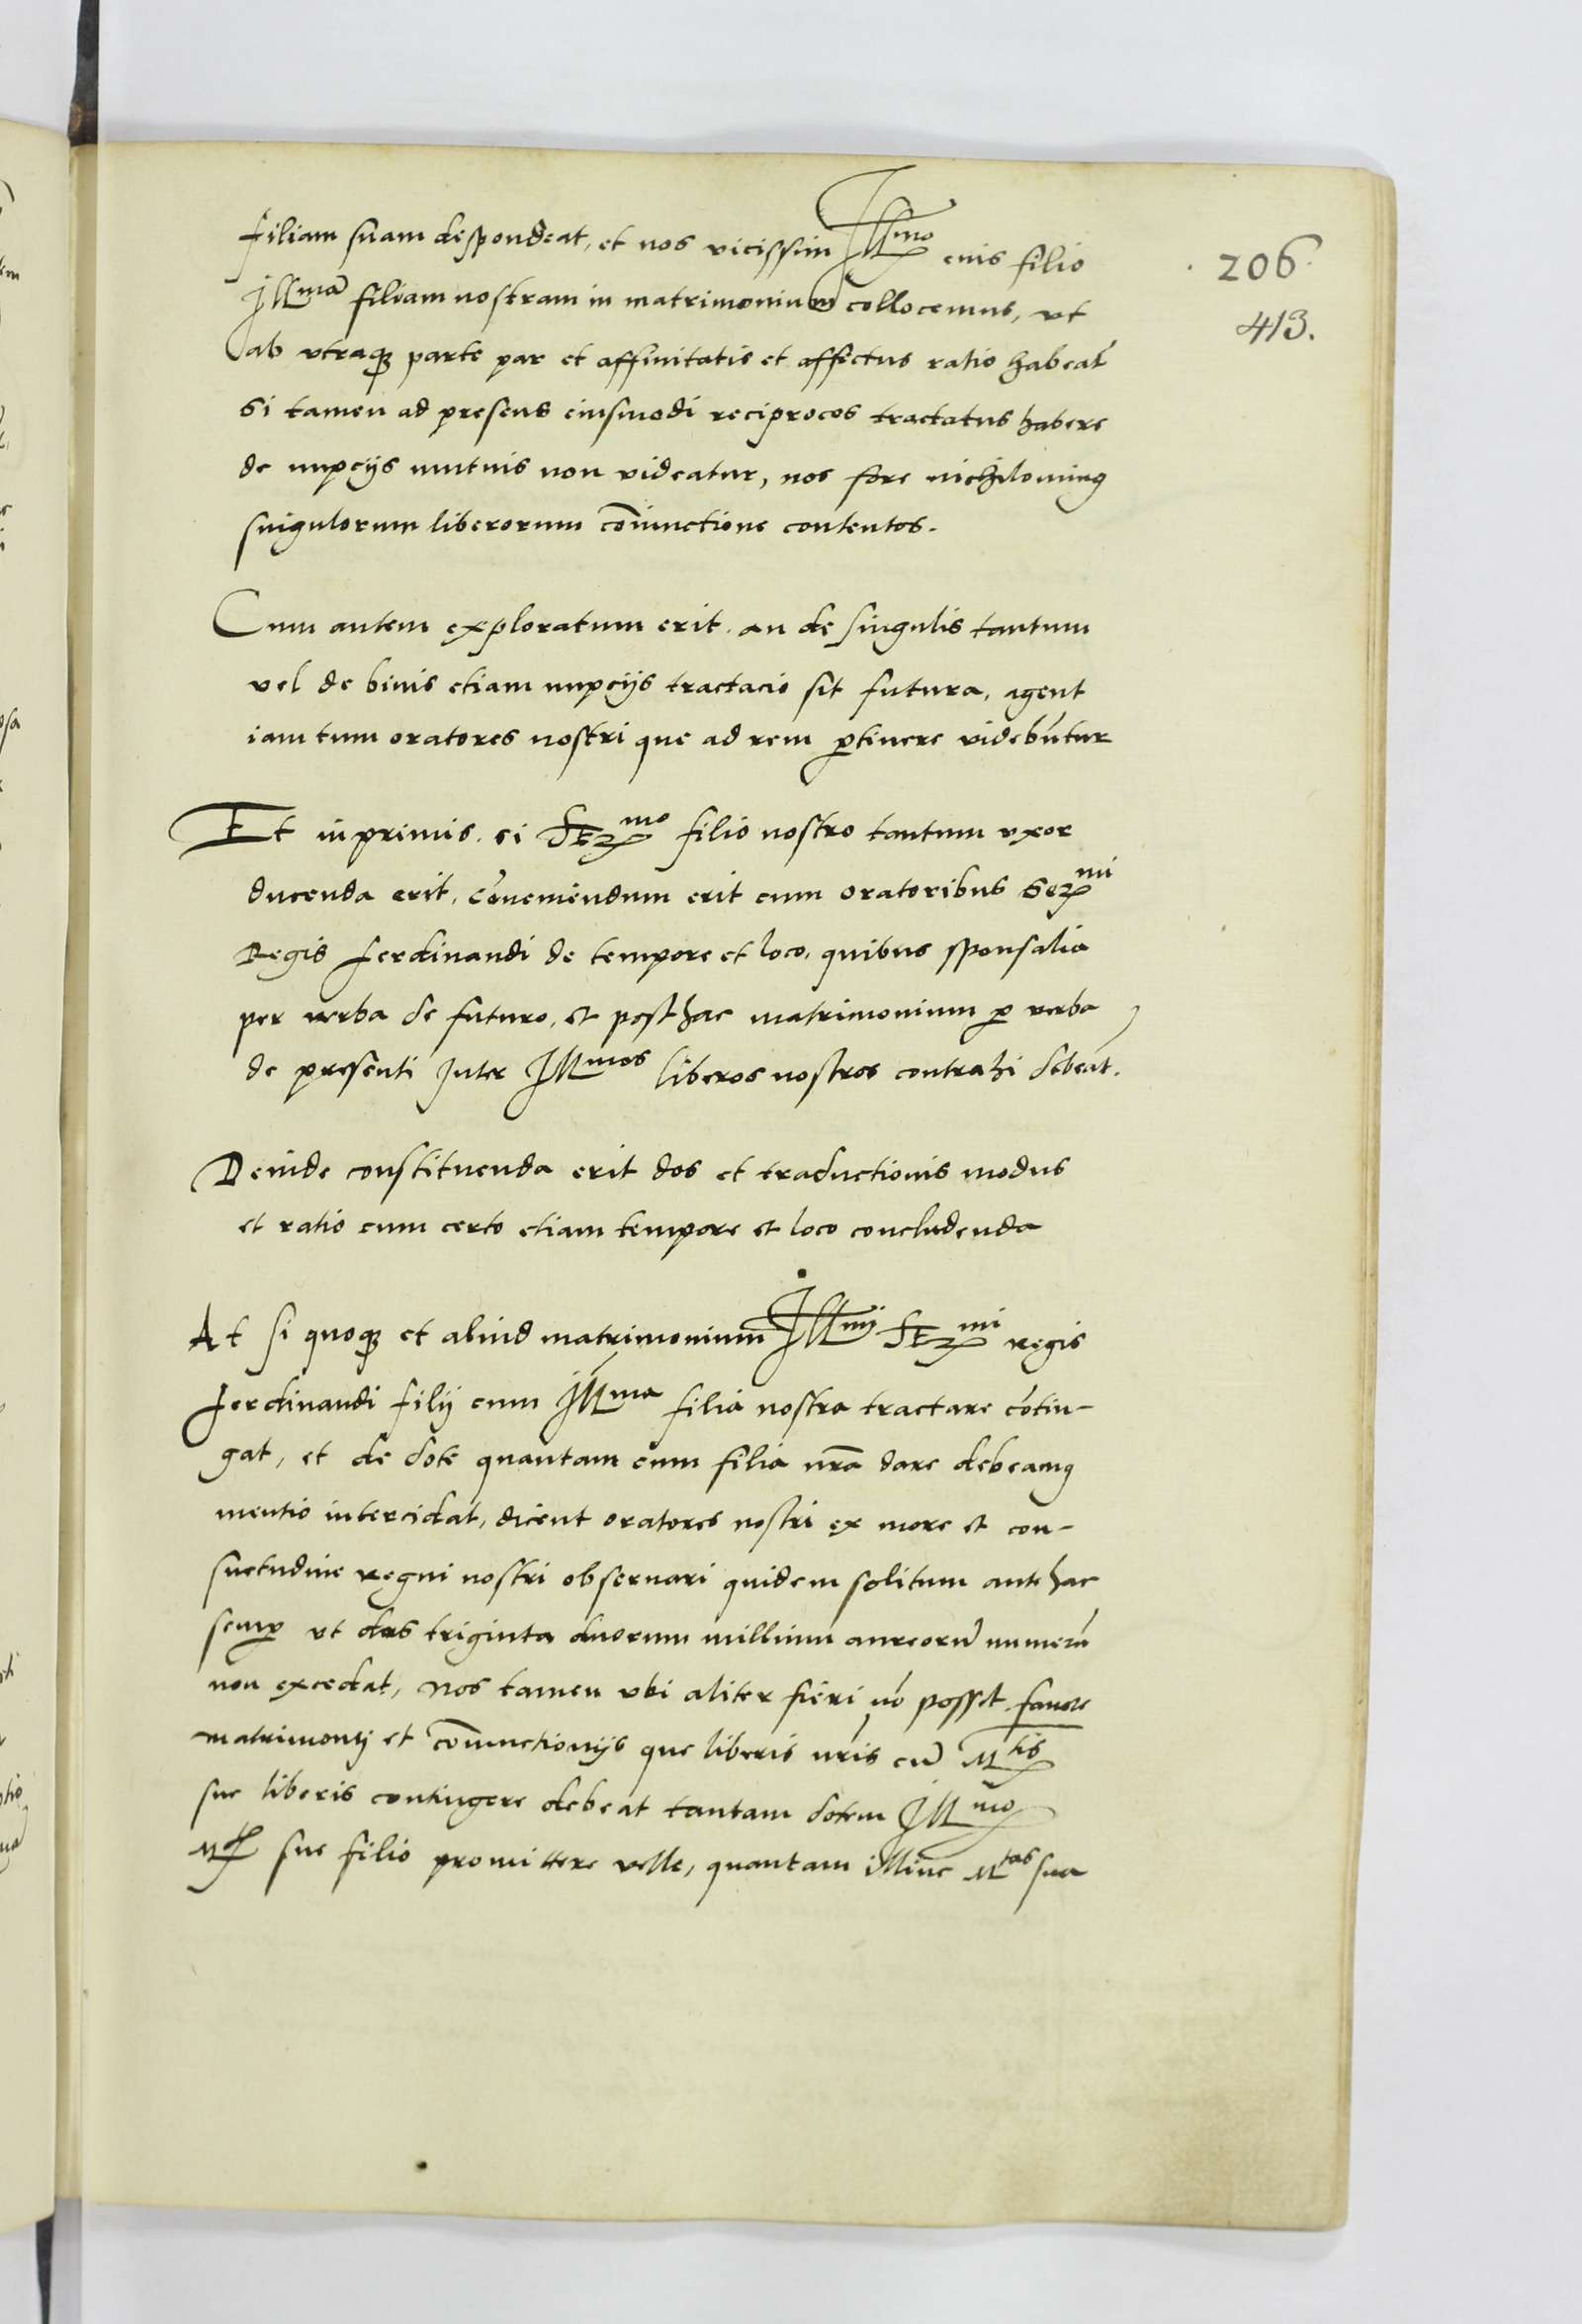 206
413.
filiam suam despondeat, et nos vicissim Ill^mo eius filio
Ill^mã filiam nostram in matrimonium collocemus, vt
ab vtraqꝫ parte par et affinitatis et affectus ratio habeat᷑
Si tamen ad presens eiusmodi reciprocos tractatus habere
de nupcijs mutuis non videatur, nos fore nichilominꝰ
singulorum liberorum cõiunctione contentos.
Cum autem exploratum erit. an de singulis tantum
vel de binis etiam nupcijs tractacio sit futura, agent
iam tum oratores nostri que ad rem ꝑtinere videbũtur
Et inprimis. si SEr^mo filio nostro tantum vxor
ducenda erit, cõueniendum erit cum oratoribus Ser^mi
Regis Ferdinandi de tempore et loco, quibus sponsalia
per verba de futuro, et posthac matrimonium ꝑ verba
de presenti Inter Ill^mos liberos nostros contrahi debeãt.
Deinde constituenda erit dos et traductionis modus
et ratio cum certo etiam tempore et loco concludenda
At si quoqꝫ et aliud matrimonium Ill^mi SEr^mi regis
Ferdinandi filij cum Ill^ma filia nostra tractare cõtin-
gat, et de dote quantam cum filia nrã dare debeamꝰ
mentio intercidat, dicent oratores nostri ex more et con-
suetudine regni nostri obseruari quidem solitum antehac
sempꝑ vt dos triginta duorum millium aureorũ numerũ
non excedat, Nos tamen vbi aliter fieri nõ posset fauore
matrimonij et cõiunctionis que liberis nr̃is cũ M^tis
sue liberis contingere debeat tantam dotem Ill^mo
M^tis sue filio promittere velle, quantam illinc M^tas sua